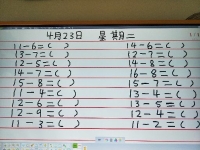 4月23日 星期二
11-6=( ) 14-6=( )
13-7=( ) 12-7=( )
12-5=( ) 14-8=( )
14-7=( ) 16-8=( )
15-8=( ) 15-7=( )
11-4=( ) 13-4=( )
12-6=( ) 13-5=( )
12-9=( ) 12-4=( )
11-3=( ) 11-2=( )